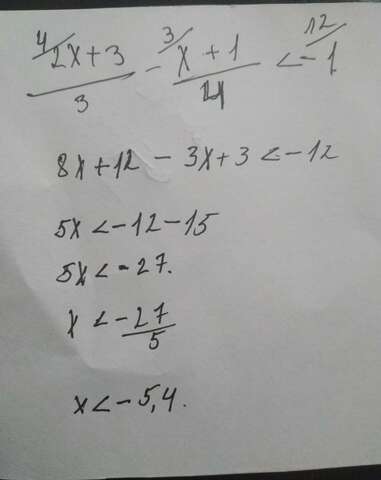 4/ 2x+3 / 3 - 3/ x+1 / 4 < 12/ -1
8x+12 - 3x+3 <-12
5x <-12-15
5x <-27.
x < -27/5
x < -5,4.